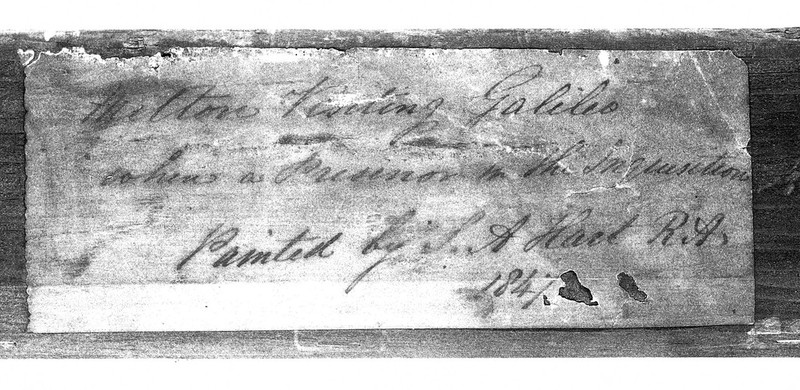 Milton Visiting Galileo
when a Prisoner in the Inquisition
Painted by S. A Hart R.A.
1847